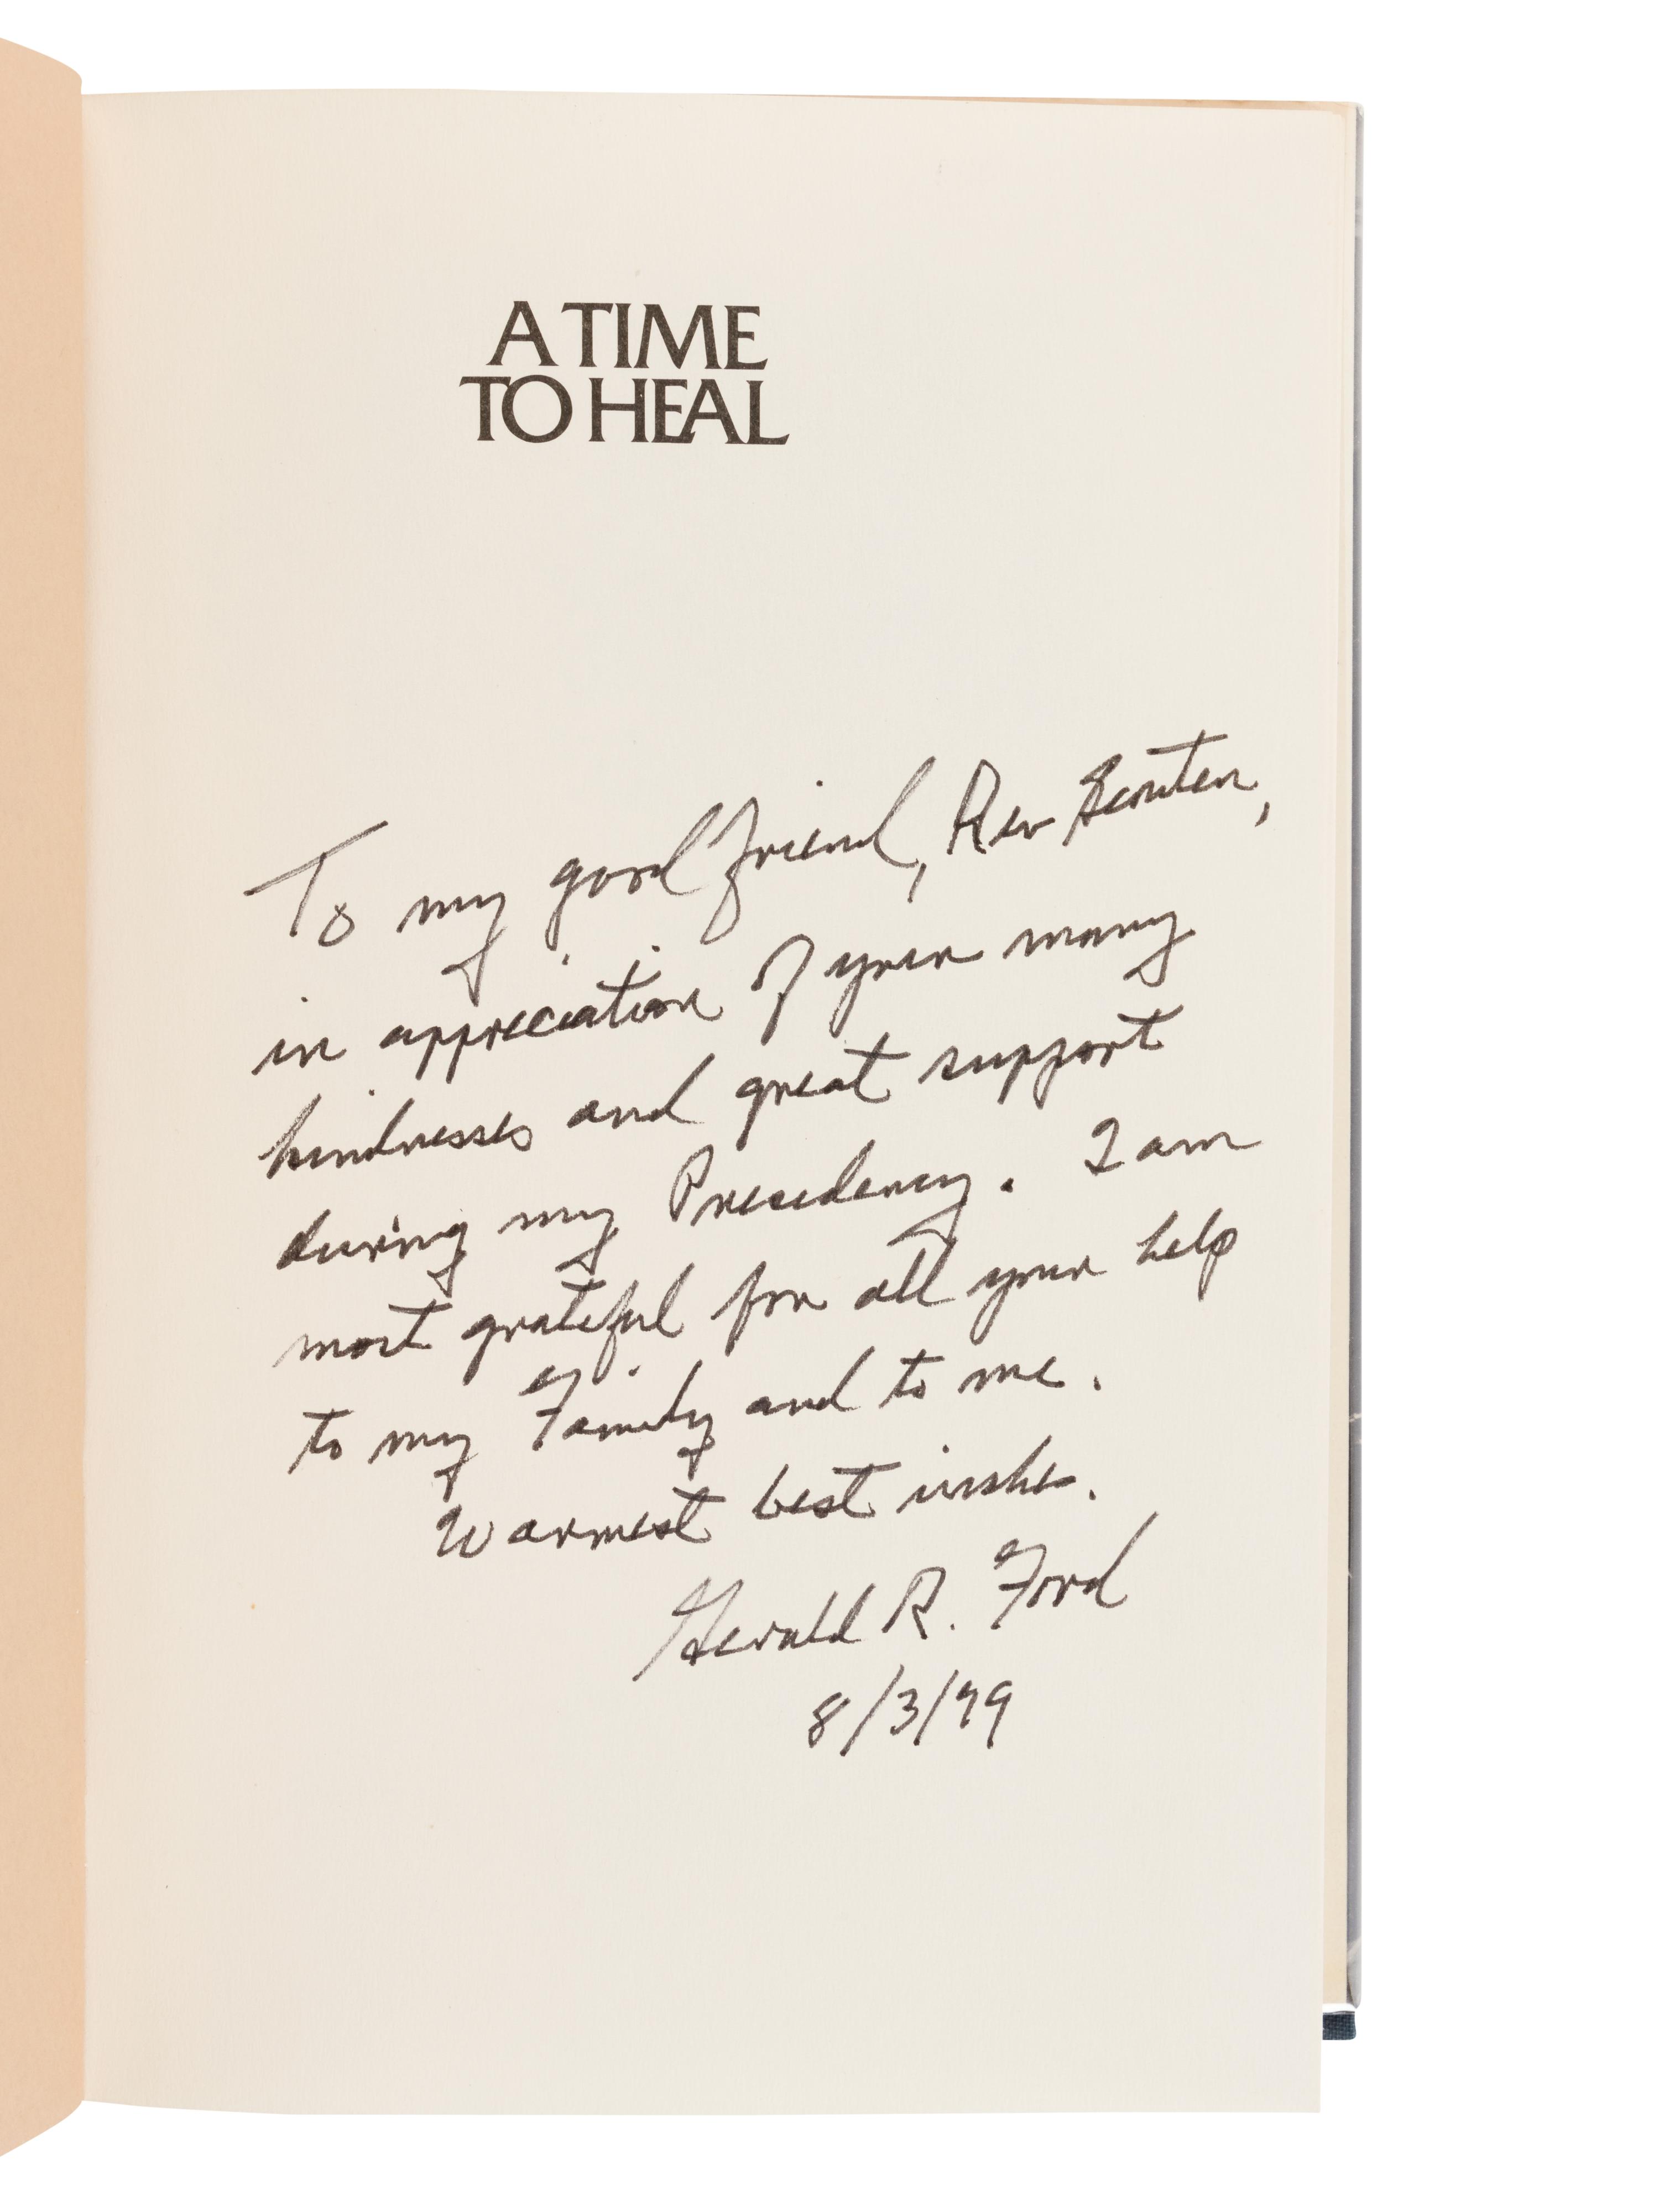 A TIME
TO HEAL
To my good friend, Rex Scouten,
in appreciation of your many
kindnesses and great support
during my Presidency. I am
most grateful for all your help
to my Family and to me.
Warmest best wishes.
Gerald R. Ford
8/3/99